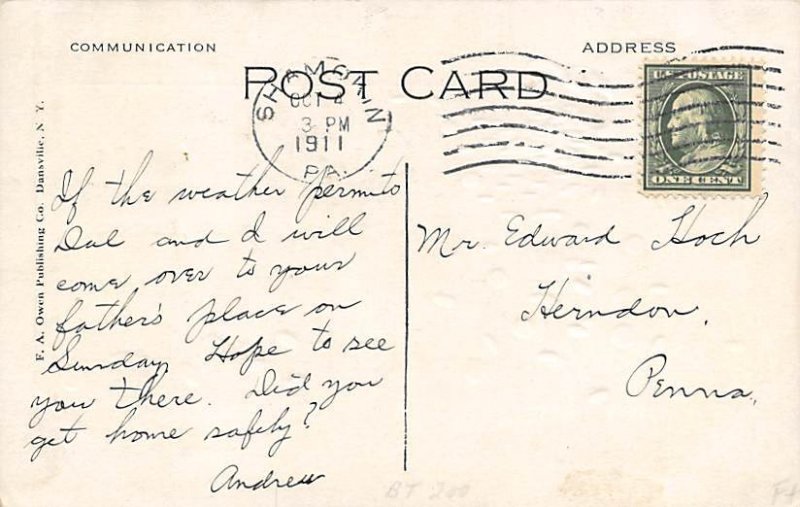 COMMUNICATION
ADDRESS
POST CARD
SHAMOKIN
OCT 4
3 PM
1911
PA.
U.S. POSTAGE
ONE CENT
F. A. Owen Publishing Co. Dansville, N. Y.
If the weather permits
Dal and I will
come over to your
father's place on
Sunday. Hope to see
you there. Did you
get home safely?
Andrew
Mr. Edward Hoch
Herndon,
Penna.
BT 200